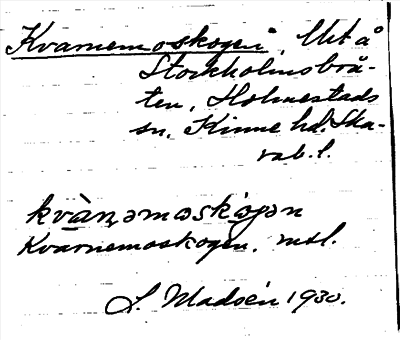 Kvarnemoskogen, Utå
Stockholmsbrå-
ten, Holmestads
sn, Kinne hd. Ska-
rab. l.
kvàn̥əmoskɷgən
Kvarnemoskogen. msl.
S. Madsén 1930.